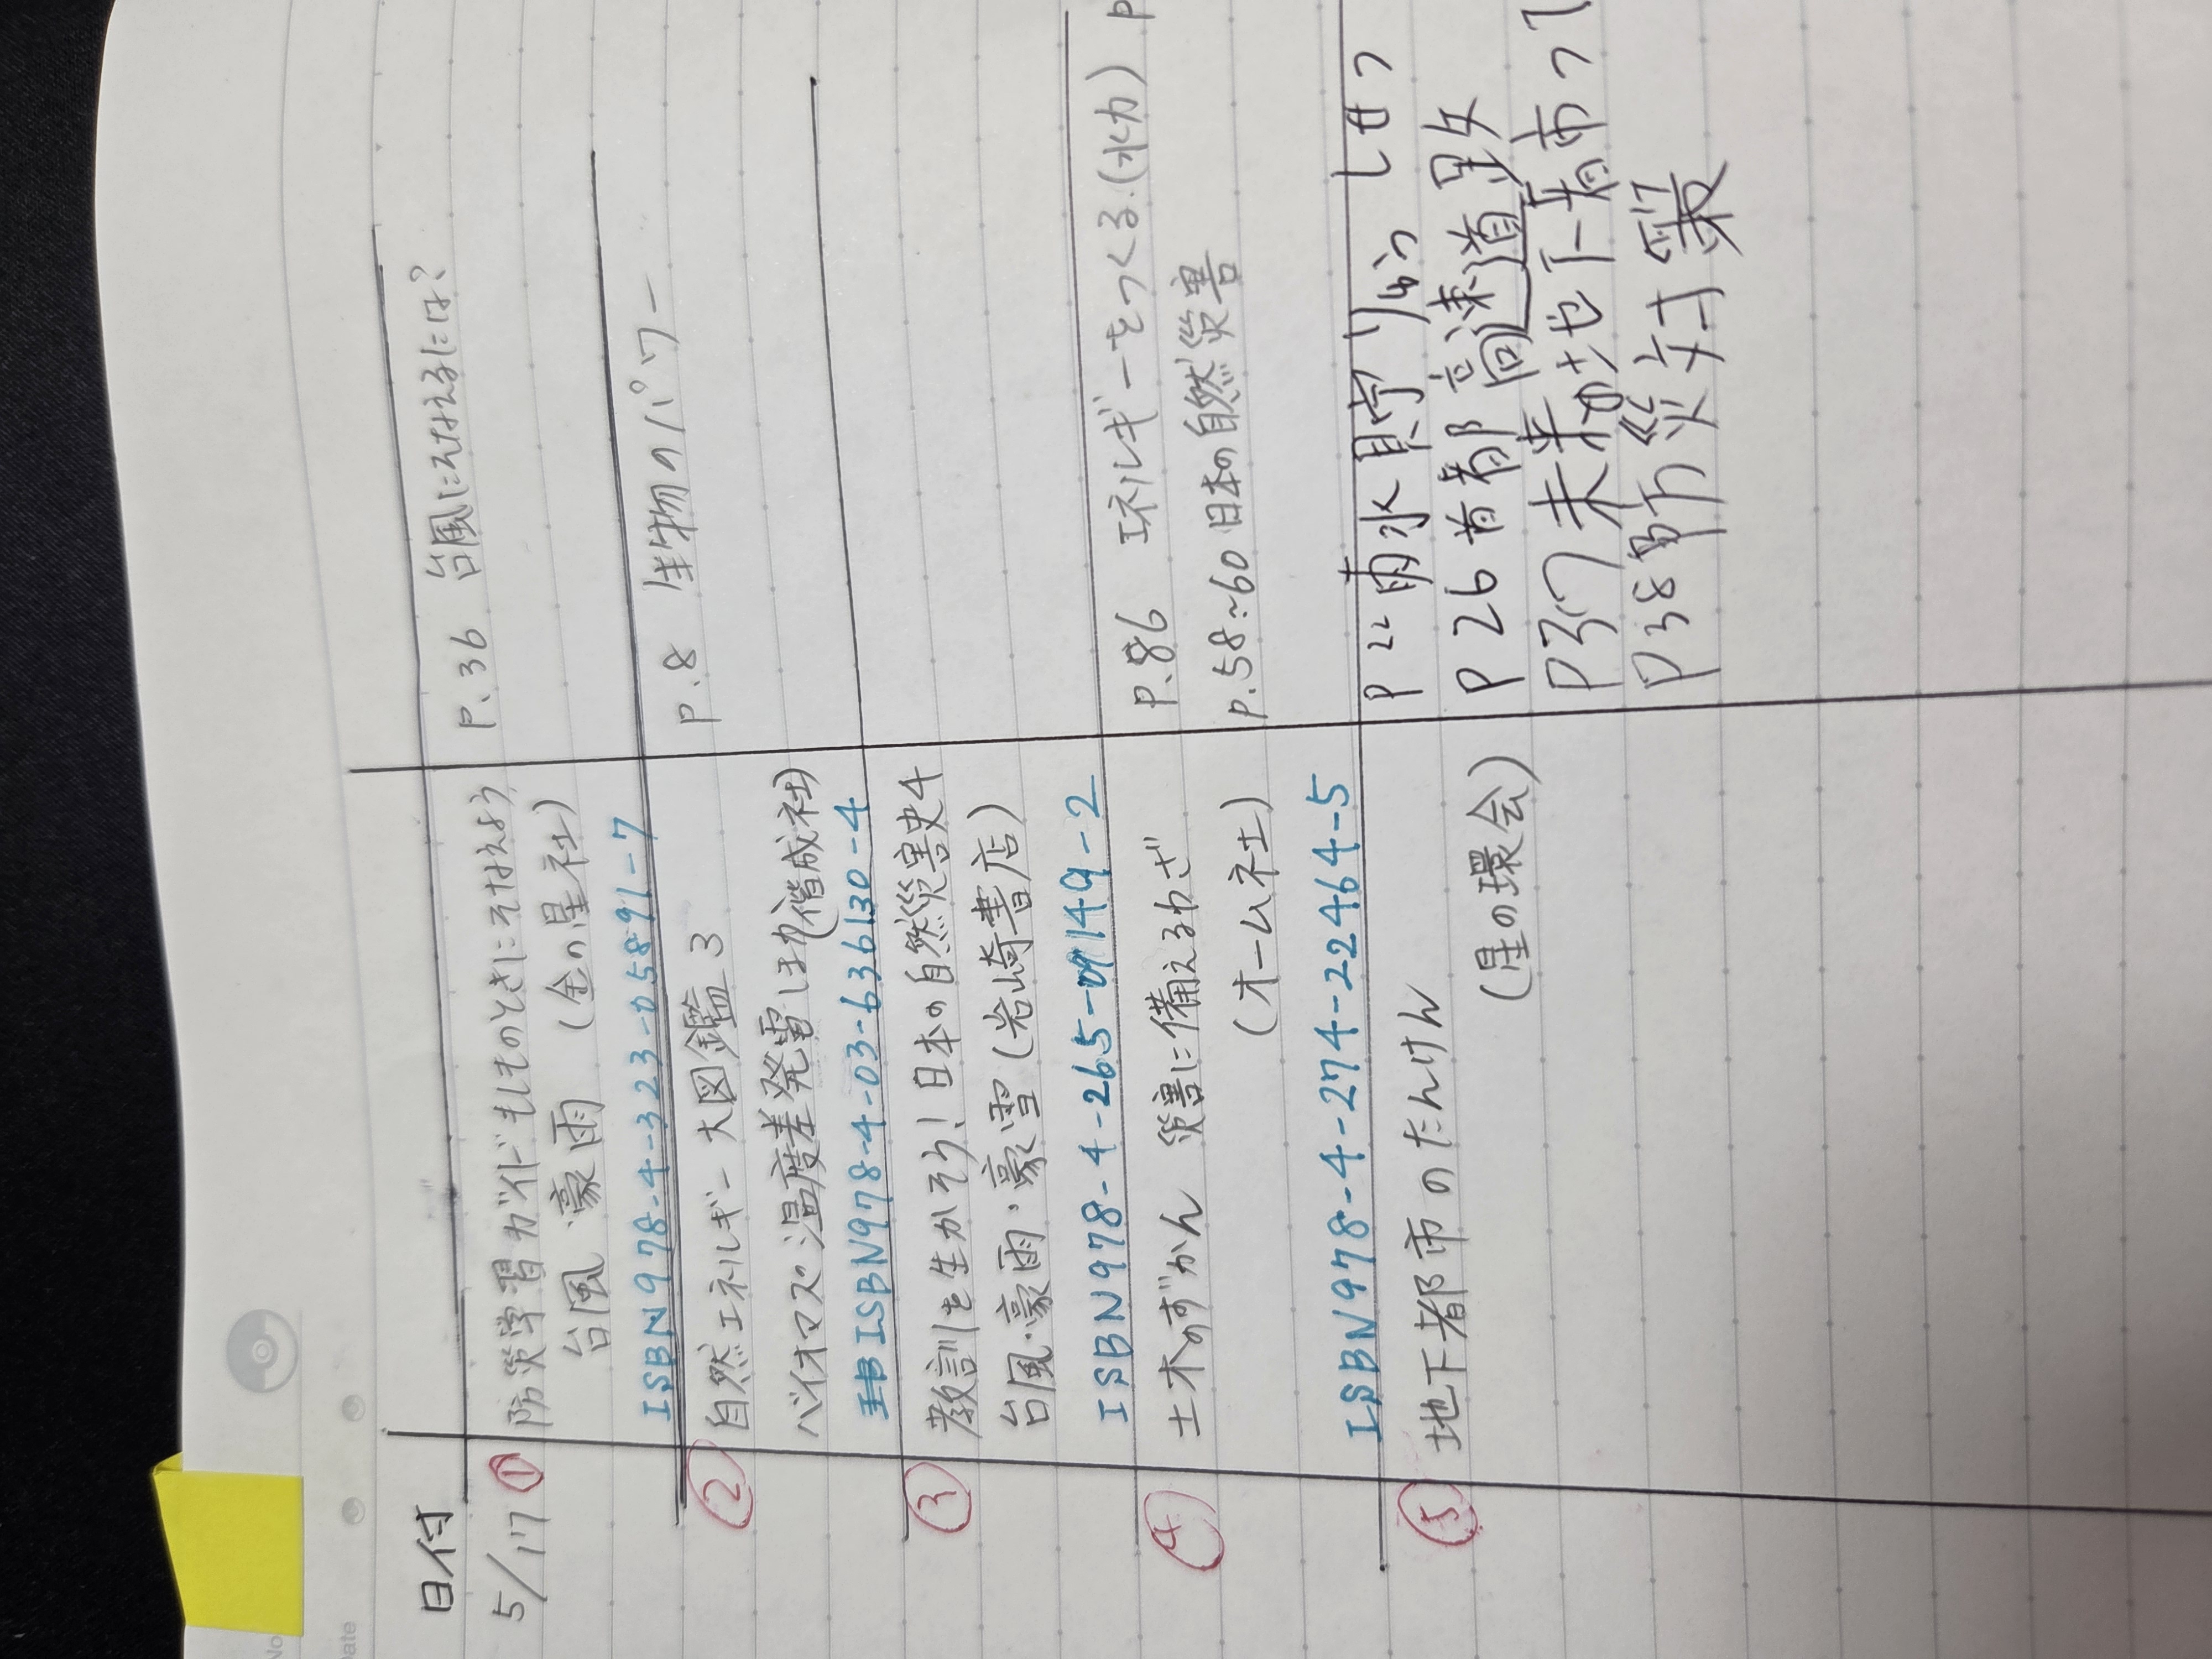 No
Date
日付
5/17 ① 防災学習ガイド もしものときにそなえよう P.36 台風にそなえるには?
台風・豪雨 (金の星社)
ISBN978-4-323-05891-7
② 自然エネルギー大図鑑3 P.8 生物のパワー
バイオマス・温度差発電ほか(偕成社)
ISBN978-4-03-636130-4
③ 教訓を生かそう!日本の自然災害史4
台風・豪雨・豪雪(岩崎書店)
ISBN978-4-265-09149-2
④ 土木のずかん 災害に備えるわざ P.86 エネルギーをつくる(水力) P
(オーム社) P.58~60日本の自然災害
ISBN978-4-274-22464-5
⑤ 地下都市のたんけん P22雨水貯りゅうしせつ
(星の環会) P26首都高速道路
P37未来がせ下都市って
P38防災対策